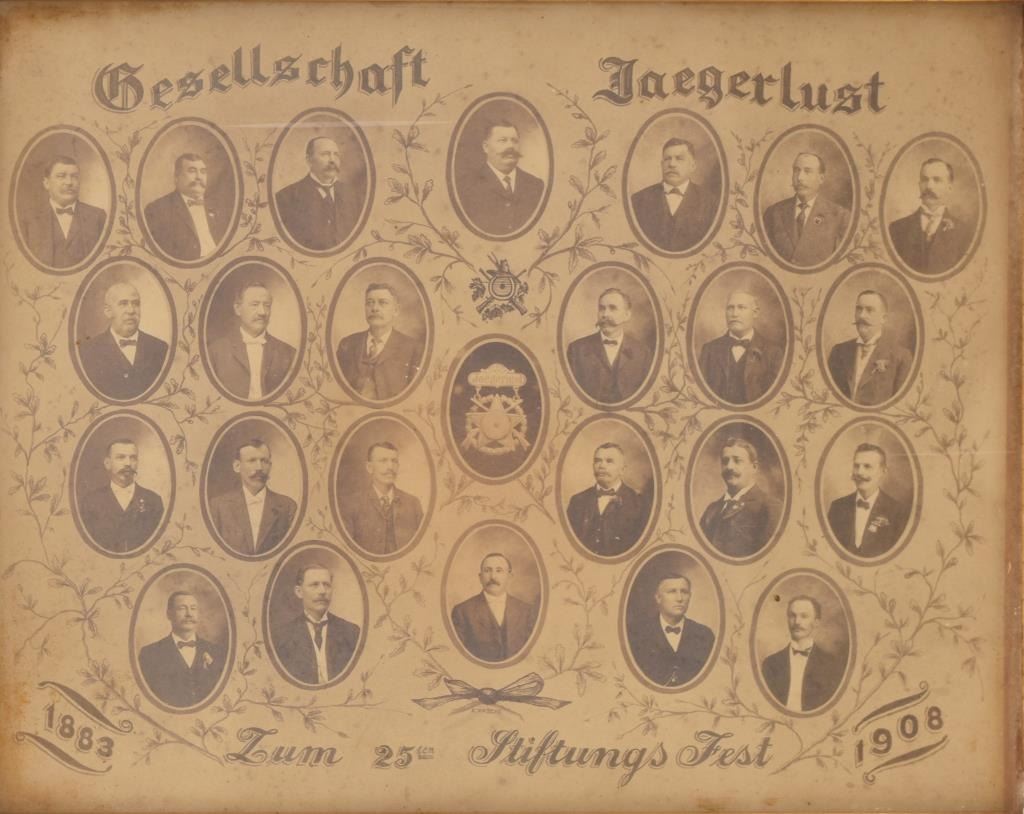 Gesellschaft Jaegerlust
1883 Zum 25ten Stiftungs Fest 1908